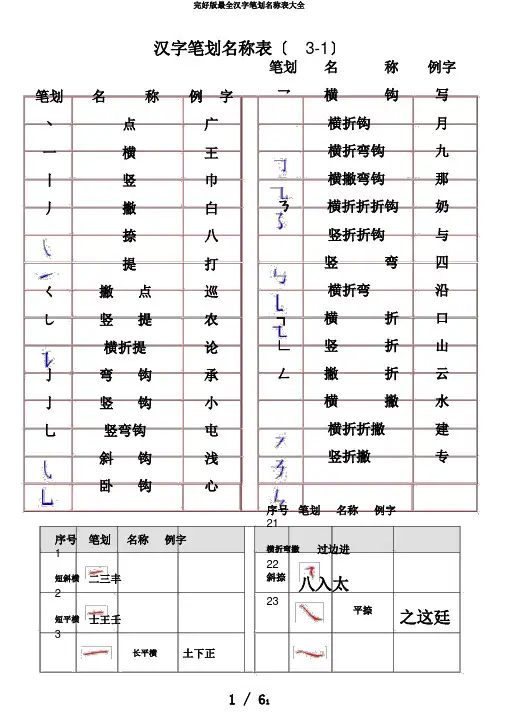 完好版最全汉字笔划名称表大全
汉字笔划名称表〔 3-1〕
笔划 名 称 例 字
丶 点 广
一 横 王
丨 竖 巾
丿 撇 白
捺 八
提 打
く 撇 点 巡
竖 提 农
横折提 论
亅 弯 钩 承
亅 竖 钩 小
乚 竖弯钩 屯
斜 钩 浅
卧 钩 心
笔划 名 称 例字
乛 横 钩 写
横折钩 月
横折弯钩 九
横撇弯钩 那
横折折折钩 奶
竖折折钩 与
竖 弯 四
横折弯 沿
横 折 口
∟ 竖 折 山
ㄥ 撇 折 云
横 撇 水
横折折撇 建
竖折撇 专
序号 笔划 名称 例字
1
短斜横 二三丰
2
短平横 士王壬
3
长平横 土下正
序号 笔划 名称 例字
21
横折弯撇 过边进
22
斜捺 八入太
23
平捺 之这廷
1 / 61